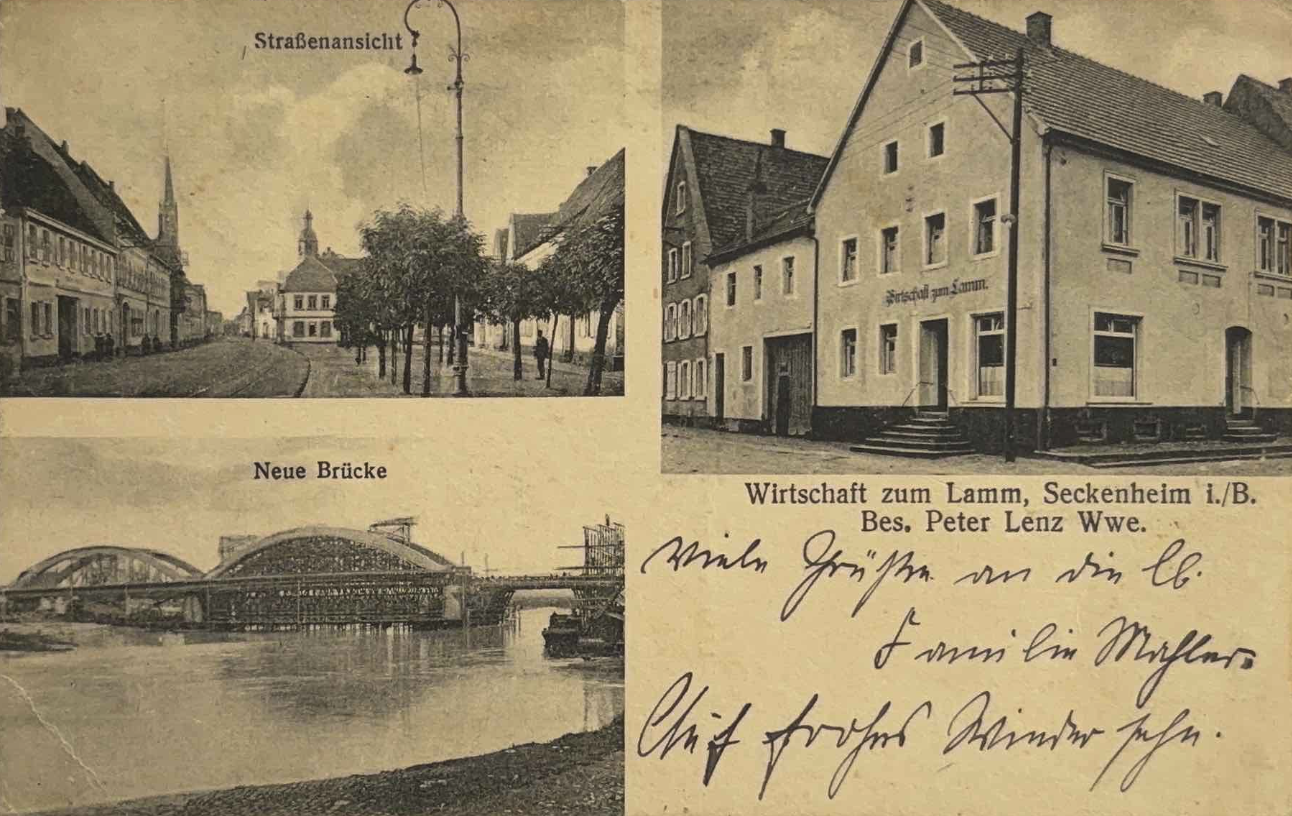 Straßenansicht
Wirtschaft zum Lamm.
Neue Brücke
Wirtschaft zum Lamm, Seckenheim i./B.
Bes. Peter Lenz Wwe.
Viele Grüße an die lb.
Familie Mahler.
Auf frohes Wiedersehn.